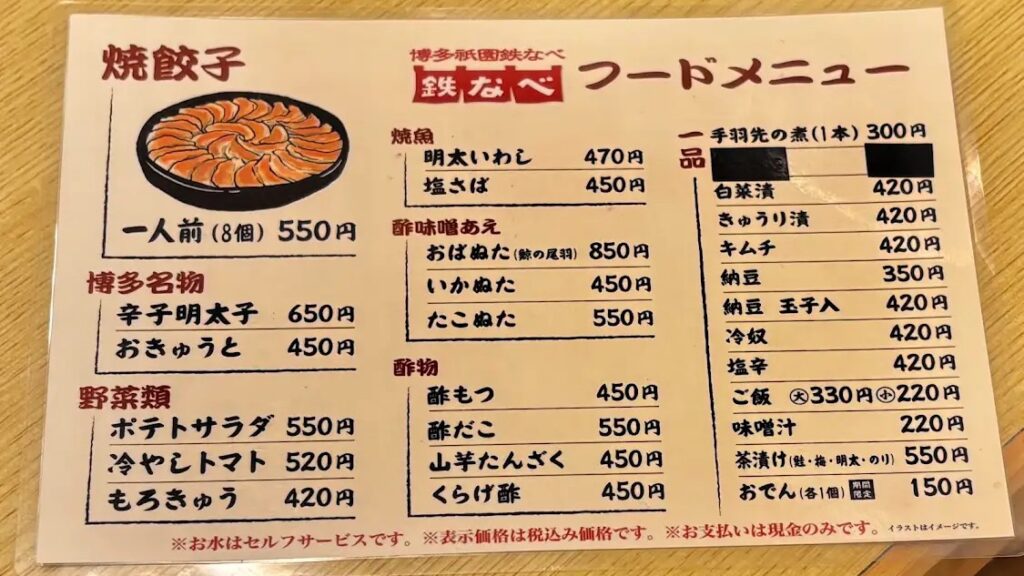 博多祇園鉄なべ
鉄なべ フードメニュー
焼餃子
一人前(8個) 550円
博多名物
辛子明太子 650円
おきゅうと 450円
野菜類
ポテトサラダ 550円
冷やしトマト 520円
もろきゅう 420円
焼魚
明太いわし 470円
塩さば 450円
酢味噌あえ
おばぬた(鯨の尾羽) 850円
いかぬた 450円
たこぬた 550円
酢物
酢もつ 450円
酢だこ 550円
山芋たんざく 450円
くらげ酢 450円
一品
手羽先の煮(1本) 300円
白菜漬 420円
きゅうり漬 420円
キムチ 420円
納豆 350円
納豆 玉子入 420円
冷奴 420円
塩辛 420円
ご飯 ㊅330円 ㊙220円
味噌汁 220円
茶漬け(鮭・梅・明太・のり) 550円
おでん(各1個) 期間限定 150円
イラストはイメージです。
※お水はセルフサービスです。※表示価格は税込み価格です。※お支払いは現金のみです。